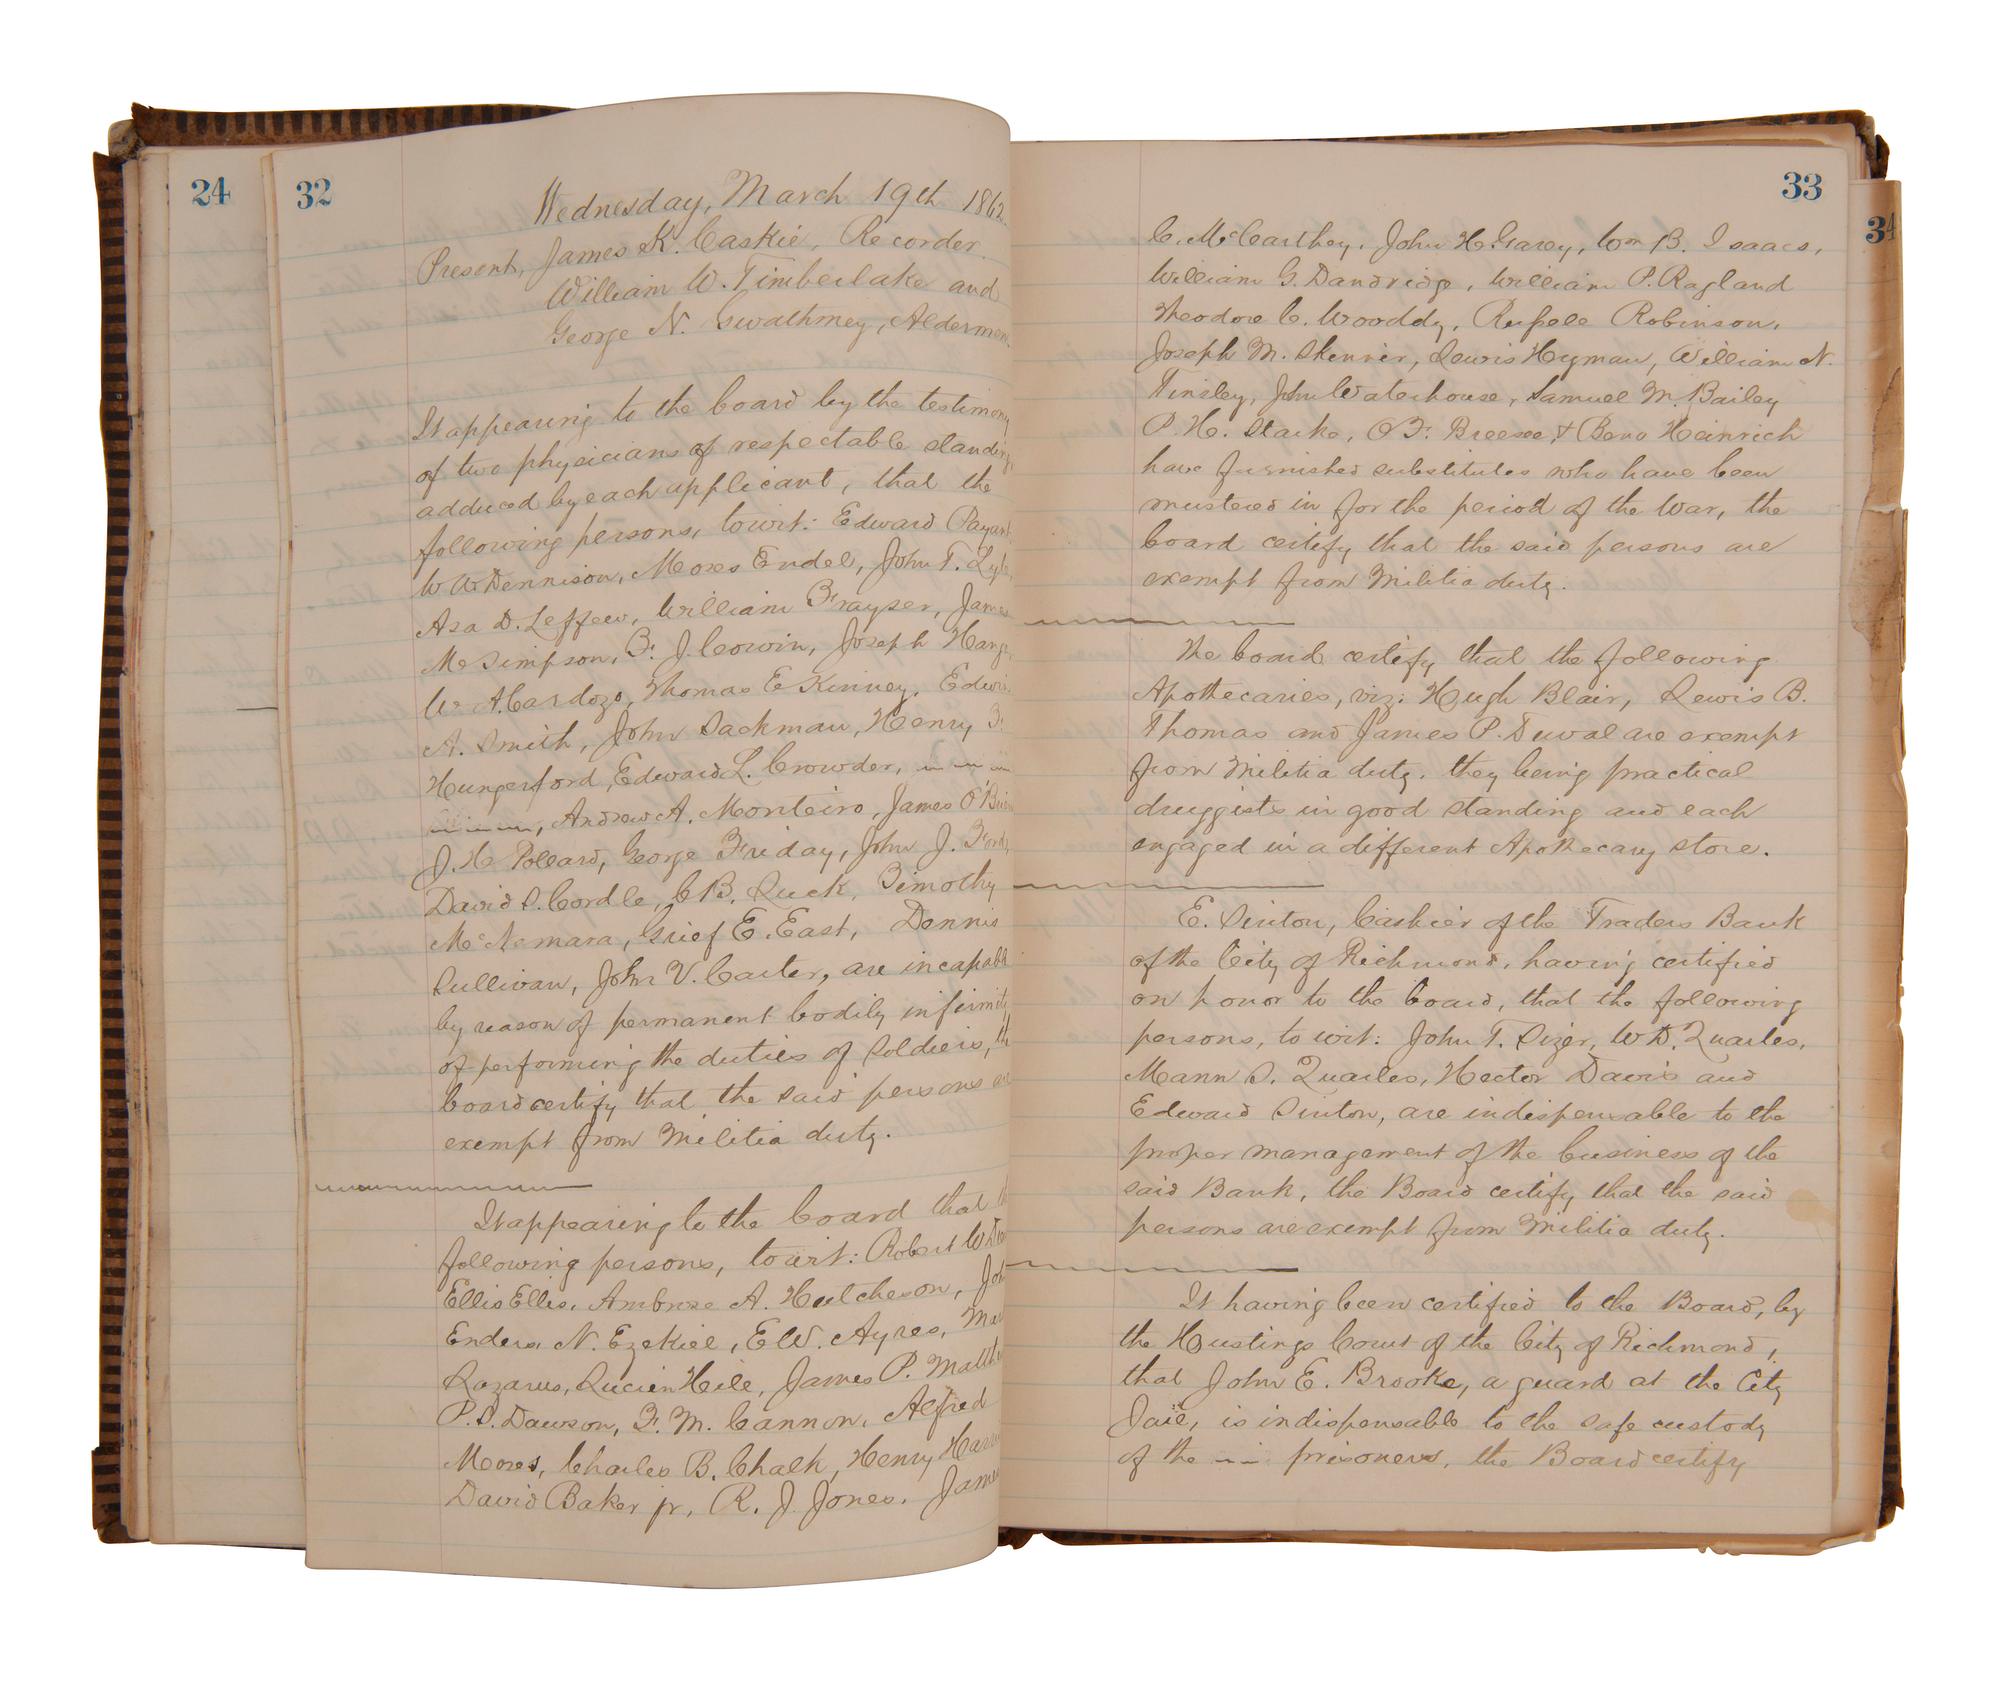 24
32
Wednesday, March 19th 1862
Present, James K. Caskie, Recorder.
William W. Timberlake and
George N. Gwathmey, Aldermen
It appearing to the board by the testimony
of two physicians of respectable standing
adduced by each applicant, that the
following persons, to wit: Edward Payant
W W Dennison, Moses Endel, John T. Lyle,
Asa D. Leffew, William Frayser, James
M Simpson, F. J. Cowin, Joseph
W. A. Cardozo, Thomas E Kinney, Edwin
A. Smith, John Sackman, Henry F.
Hungerford, Edward L. Crowder,
Andrew A. Monteiro, James O'Brien
J. H Pollard, George Friday, John J. Ford,
David S. Cordle, C B. Luck, Timothy
McNamara, Grief E. East, Dennis
Sullivan, John V. Carter, are incapable
by reason of permanent bodily infirmity
of performing the duties of Soldiers, th
board certify that the said persons are
exempt from Militia duty.
It appearing to the board that th
following persons, to wit: Robert W
Ellis Ellis, Ambrose A. Hutcheson, Joh
Enders, N. Ezekiel, E W. Ayres, Mar
Lazarus, Lucien Heile, James P. Matth
P. S. Dawson, F. M. Cannon, Alfred
Moses, Charles B. Chalk, Henry Har
David Baker jr, R. J. Jones. James
33
C. McCarthey, John H. Garey, Wm B. Isaacs,
William G. Dandridge, William P. Ragland
Theodore C. Wooddy, Robinson,
Joseph M. Skenner, Lewis Hyman, William N.
Tinsley, John Waterhouse, Samuel M. Bailey
P. H. Starke, O F. Breese, & Beno Heinrich
have furnished substitutes who have been
mustered in for the period of the War, the
board certify that the said persons are
exempt from Militia duty.
The board certify that the following
Apothecaries, viz: Hugh Blair, Lewis B.
Thomas and James P. Duval are exempt
from Militia duty. they being practical
druggists in good standing and each
engaged in a different Apothecary store.
E. Sinton, Cashier of the Traders Bank
of the City of Richmond, having certified
on honor to the board, that the following
persons, to wit: John T. Sizer, W D. Quarles,
Mann S. Quarles, Hector Davis and
Edward Sinton, are indispensable to the
proper management of the business of the
said Bank, the Board certify that the said
persons are exempt from Militia duty.
It having been certified to the Board, by
the Hustings Court of the City of Richmond,
that John E. Brooke, a guard at the City
Jail, is indispensable to the safe custody
of the prisoners, the Board certify
34